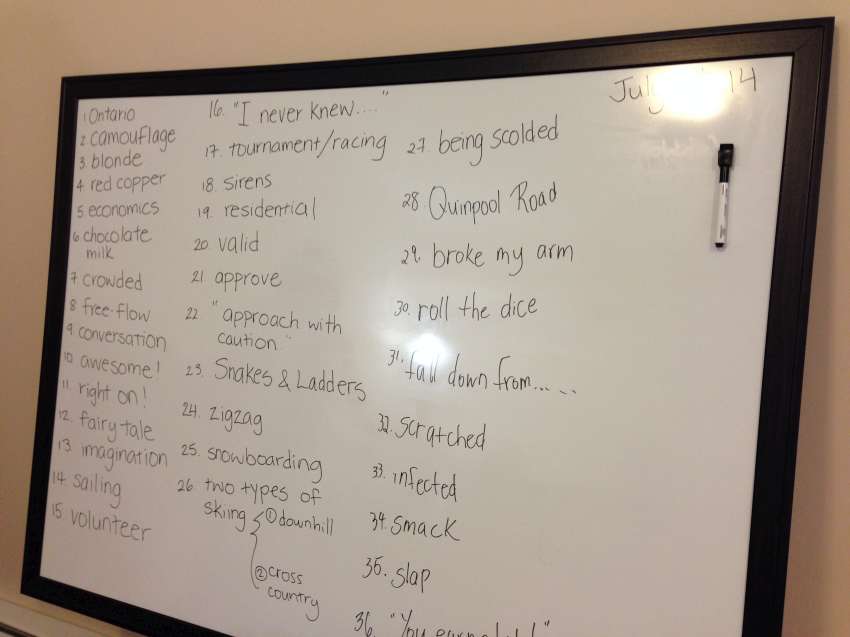 July 14
1 Ontario
2 camouflage
3. blonde
4 red copper
5 economics
6. chocolate
milk
7 crowded
8 free-flow
9. conversation
10 awesome!
11. right on!
12. fairy tale
13. imagination
14 sailing
15 volunteer
16. "I never knew...."
17. tournament/racing
18 sirens
19. residential
20. valid
21 approve
22 "approach with
caution"
23. Snakes & Ladders
24. zigzag
25. snowboarding
26. two types of
skiing ① downhill
② cross
country
27. being scolded
28. Quinpool Road
29. broke my arm
30. roll the dice
31. fall down from.....
32. scratched
33. infected
34. smack
35. slap
36. "You